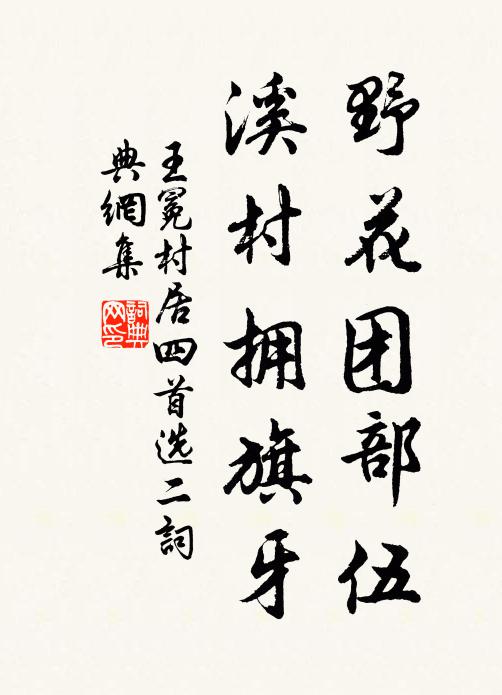 野花团部伍
溪村拥旗牙
王冕村居四首选二詞
典網集
詞典
网印